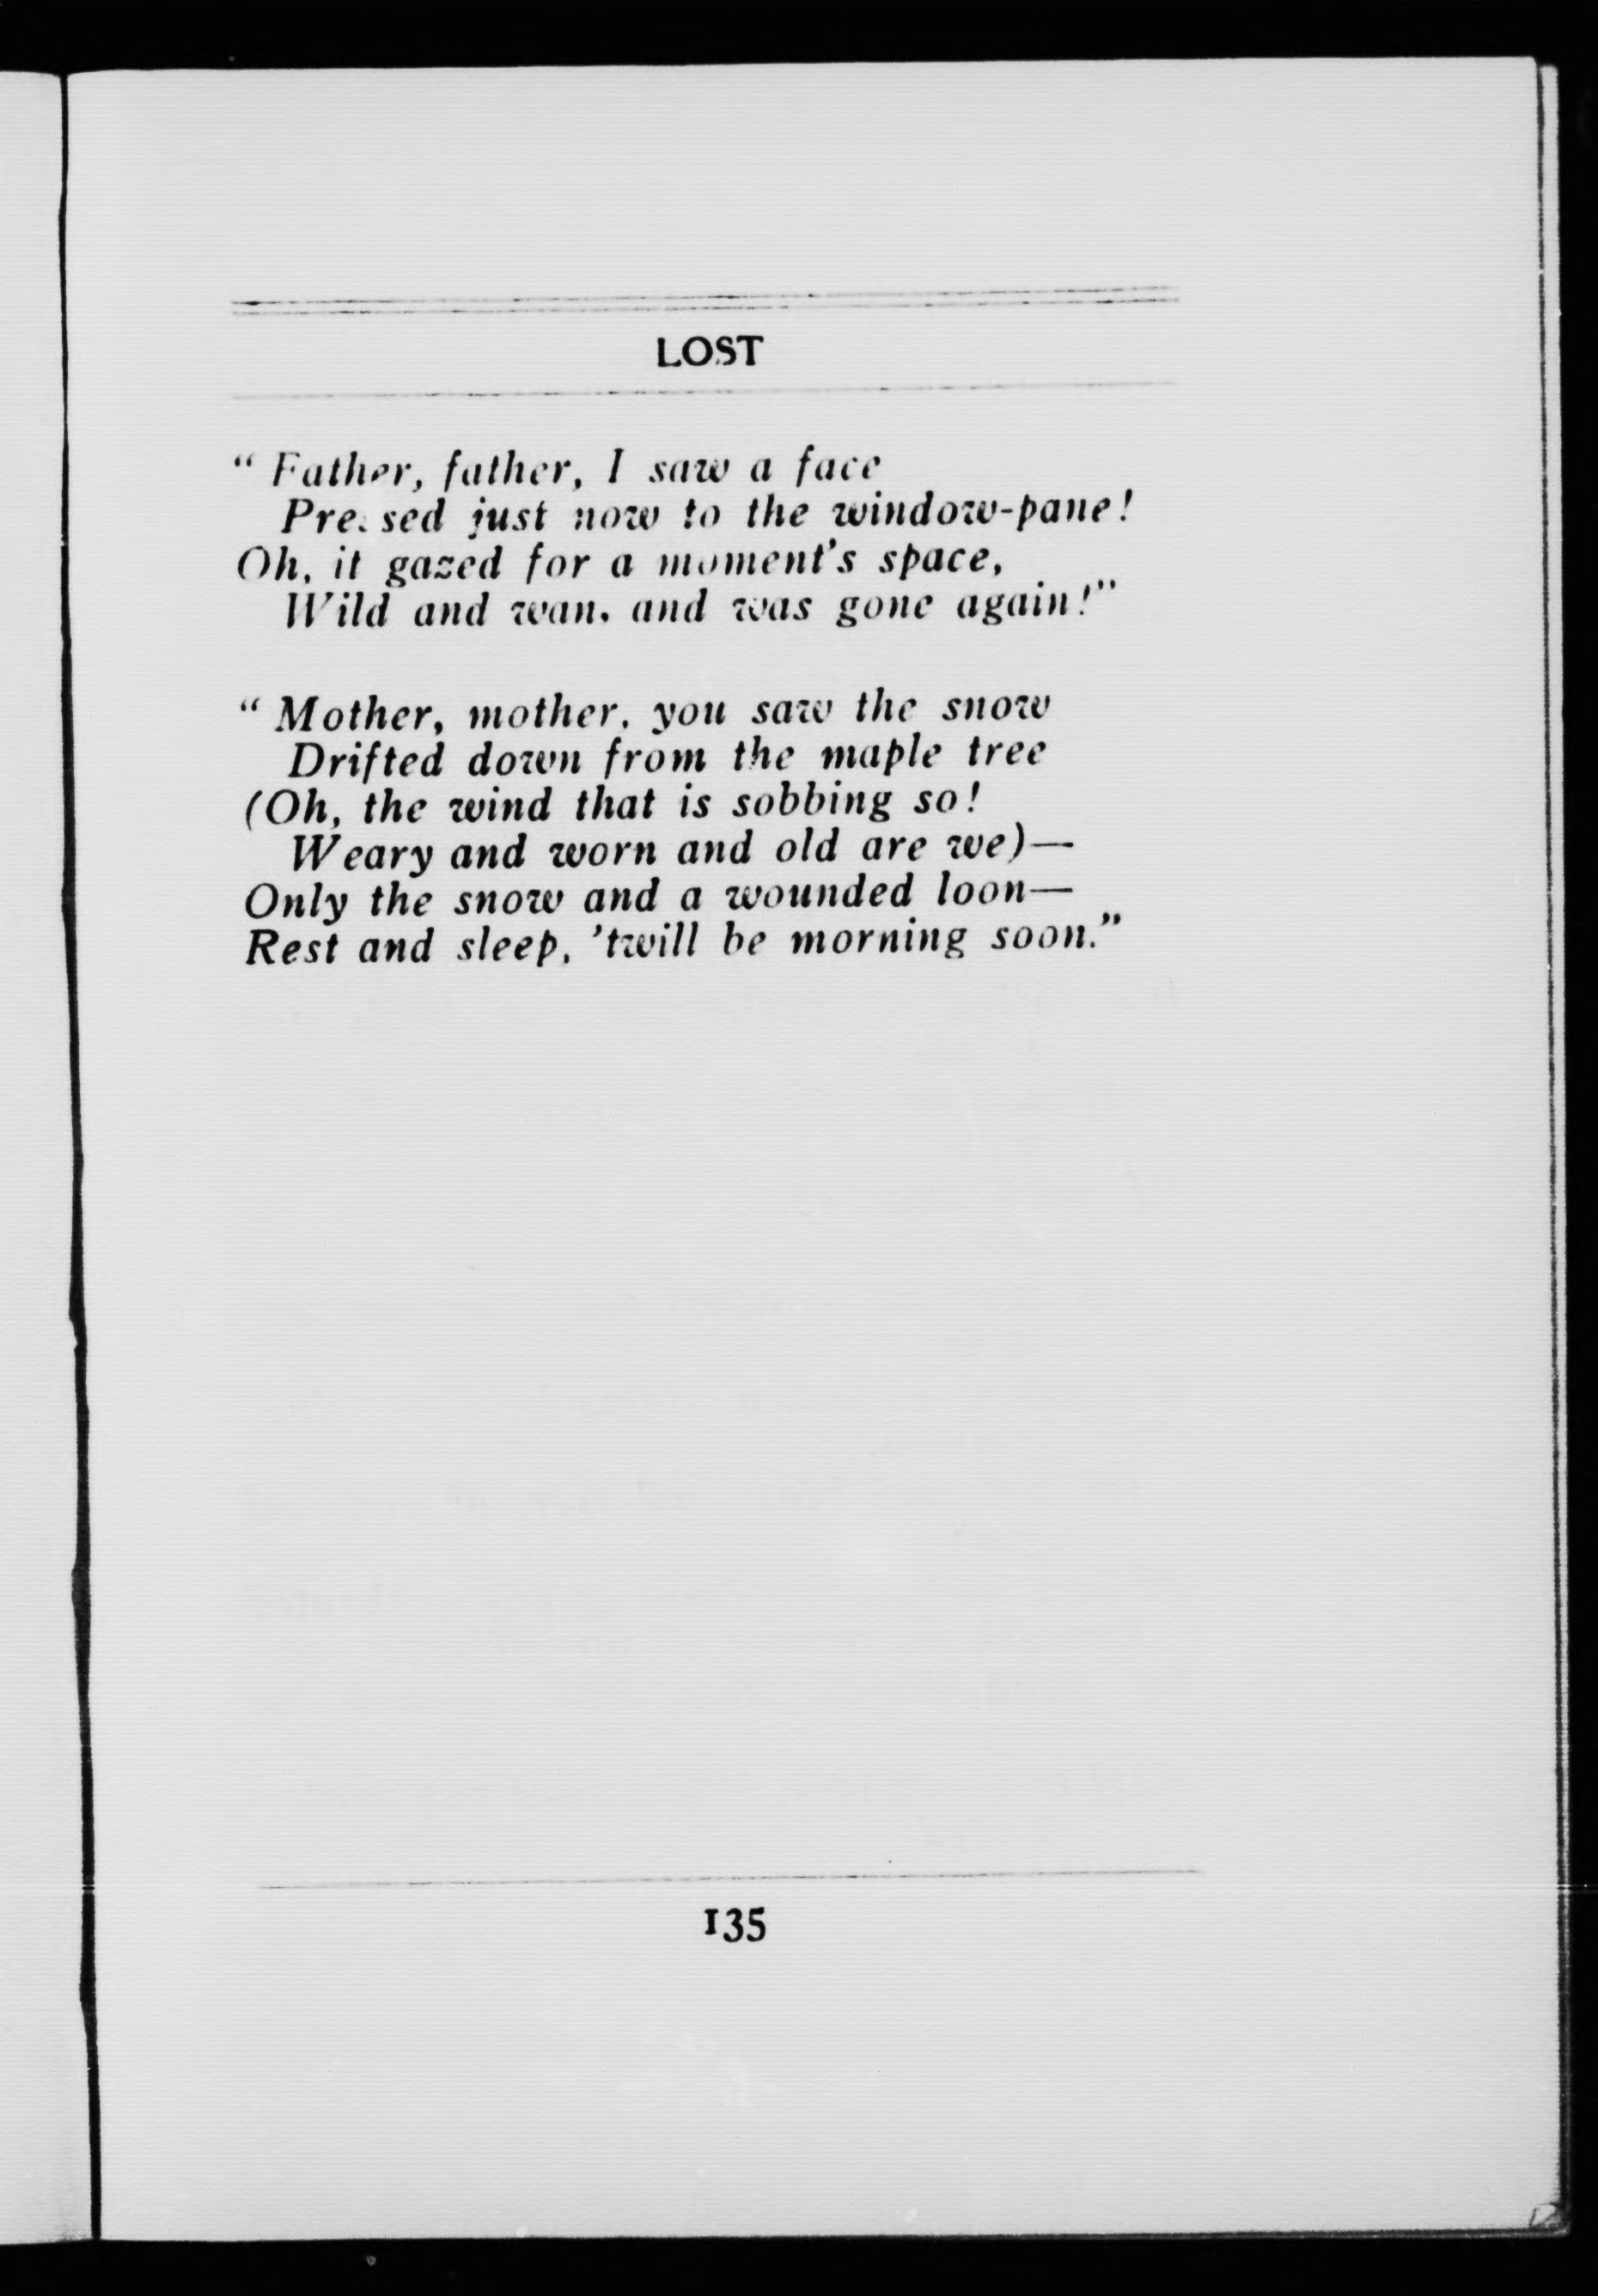 LOST
“ Father, father, I saw a face
Pressed just now to the window-pane!
Oh, it gazed for a moment's space,
Wild and wan, and was gone again!”
“ Mother, mother, you saw the snow
Drifted down from the maple tree
(Oh, the wind that is sobbing so!
Weary and worn and old are we)—
Only the snow and a wounded loon—
Rest and sleep, 'twill be morning soon.”
135